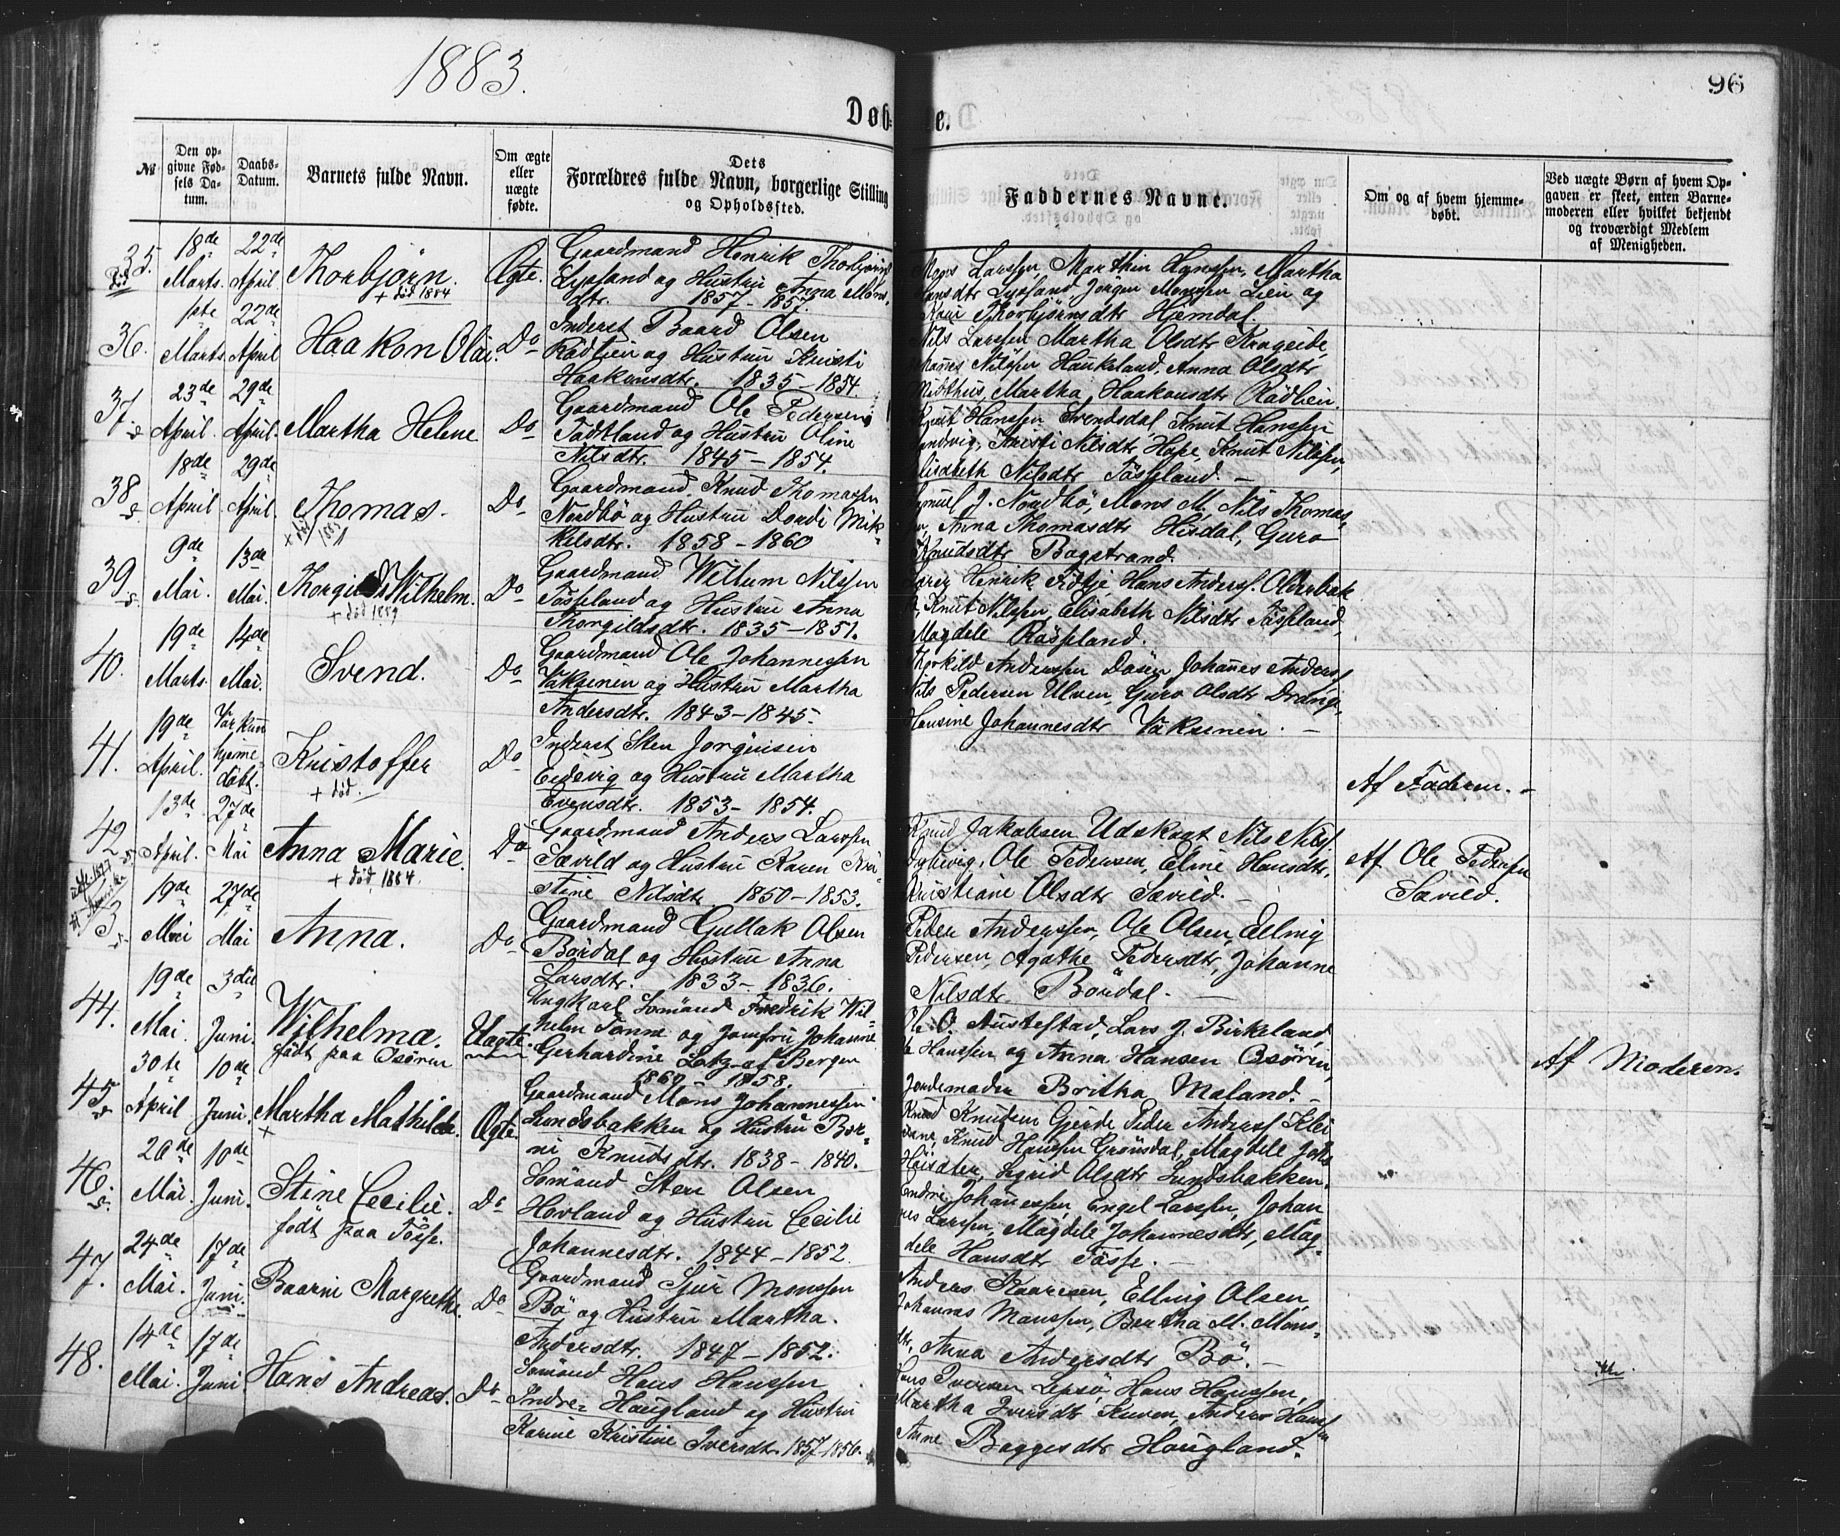 1883.
96
Døb- te.
№
Den opgivne Fødsels Datum.
Daabs-Datum.
Barnets fulde Navn.
Om ægte eller uægte fødte.
Dets Forældres fulde Navn, borgerlige Stilling og Opholdssted.
Faddernes Navne.
Om og af hvem hjemmedøbt.
Ved uægte Børn af hvem Opgaven er skeet, enten Barnemoderen eller hvilket bekjendt og troværdigt Medlem af Menigheden.
35. 18de Marts. 22de April Thorbjörn. + död 1884 Ægte.
Gaardmand Henrik Thorbjörns
Lysland og Hustru Anna Mons
dtr. 1857 - 1857.
Mons Larssen, Marthin Hanssen, Martha
Hansdtr Lysland, Jörgen Monssen Lien og
Kari Thorbjörnsdtr Hæmdal.
36. 1ste Marts. 22de April Haakon Olai. Do
Inderst Baard Olsen
Rödlien og Hustru Kristi
Haakonsdtr. 1835 - 1854.
Nils Larssen, Martha Olsdtr
Nilssen Haukeland, Anna Olsdtr
Midthus, Martha Haakonsdtr Rödlien.
37. 23de April. 29de April. Martha Helene Do
Gaardmand Ole Pedersen
Tödtland og Hustru Oline
Nilsdtr. 1845 - 1854.
Knut Hanssen Svendsdal Knut Hanssen
Kristi Nilsdtr Hope, Knut Nilssen,
Elisabeth Nilsdtr Tösseland. -
38. 18de April 29de April. Thomas. × död Do
Gaardmand Knud Thomassen
Nordbö og Hustru Dordi Mik-
kelsdtr. 1858 - 1860
J. Nordbö, Mons M. Nils Thomas-
Anna Thomasdtr Hisdal, Guro
Knudsdtr Bogstrand.
39. 9de Mai. 13de Mai. Thorgilds Wilhelm. + död 1889 Do
Gaardmand Willum Nilssen
Tösseland og Hustru Anna
Thorgildsdtr. 1835 - 1851.
Henrik Hans Anderss.
Knut Nilssen, Elisabeth Nilsdtr Tösseland,
Magdele Rösseland.
40. 19de Marts. 14de Mai. Svend. Do
Gaardmand Ole Johannessen
Vaksinen og Hustru Martha
Andersdtr. 1843 - 1845.
Thorkild Anderssen Dösen Johanes Anders
Nils Pedersen Ulven, Guro Olsdtr Drange,
Hansine Johannesdtr Vaksinen. -
41. 19de April. hjeme-döbt. Kristoffer + död. Do
Inderst Sten Jorgensen
Eidevig og Hustru Martha
Evensdtr. 1853 - 1854.
Af Faderen. -
42 13de April. 27de Mai Anna Marie. + död 1884. Do
Gaardmand Anders Larssen
Sævild og Hustru Karen Kri-
stine Nilsdtr 1850 - 1853.
Knud Jakobsen Udskaat Nils Nils.
Ole Pedersen, Eline Hansdtr,
Kristiane Olsdtr Sævild. -
Af Ole Pedersen
Sævild.
3 19de Mai 27de Mai Anna. Do
Gaardmand Gullak Olsen
Bördal og Hustru Anna
Larsdtr. 1833 - 1836.
Peder Anderssen, Ole Olsen, Elling
Pedersen, Agathe Pedersdtr, Johanne
Nilsdtr. Bördal. -
44. 19de Mai 3die Juni. Wilhelma. födt paa Osören Uægte
Ungkarl Sömand Fredrik Wil-
helm og Jomfru Johanne
Gerhardine af Bergen
1860 - 1858.
Ole O. Austestad, Lars J. Birkeland,
Hanssen og Anna Hansen Osören,
Jordemoder Britha Maland. -
Af Moderen.
45. 30te April 10de Juni. Martha Mathilde. + Ægte
Gaardmand Mons Johannessen
Lundsbakken og Hustru Bor-
ni Knudsdtr. 1838 - 1840.
Knud Knudsen Gjerde Peder Anderss
Knud Hanssen Grönsdal, Magdele Joh
Sigrid Olsdtr Lundsbakken.
46. 20de Mai. 10de Juni. Stine Cecilie. födt paa Tösse. Do
Sömand Sten Olsen
Hovland og Hustru Cecilie
Johannesdtr. 1844 - 1852.
Endre Johannessen, Engel Larssen, Johan
nes Larssen, Magdele Johannesdtr, Mag-
dele Hansdtr Tösse. -
47. 24de Mai. 17de Juni. Baarni Margrethe. Do
Gaardmand Sjur Monssen
Bö og Hustru Martha
Andersdtr. 1847 - 1852.
Anders Elling Olsen,
Johannes Monssen, Bertha M. Mons-
dtr, Anna Andersdtr Bö. -
48. 14de Mai. 17de Juni Hans Andreas. Do
Sömand Hans Hanssen
Indre Haugland og Hustru
Karine Kristine Iversdtr. 1857-1856.
Iversen Lepsö, Hans Hanssen,
Martha Iversdtr Kuven, Anders Hans
Anne Baggesdtr Haugland.